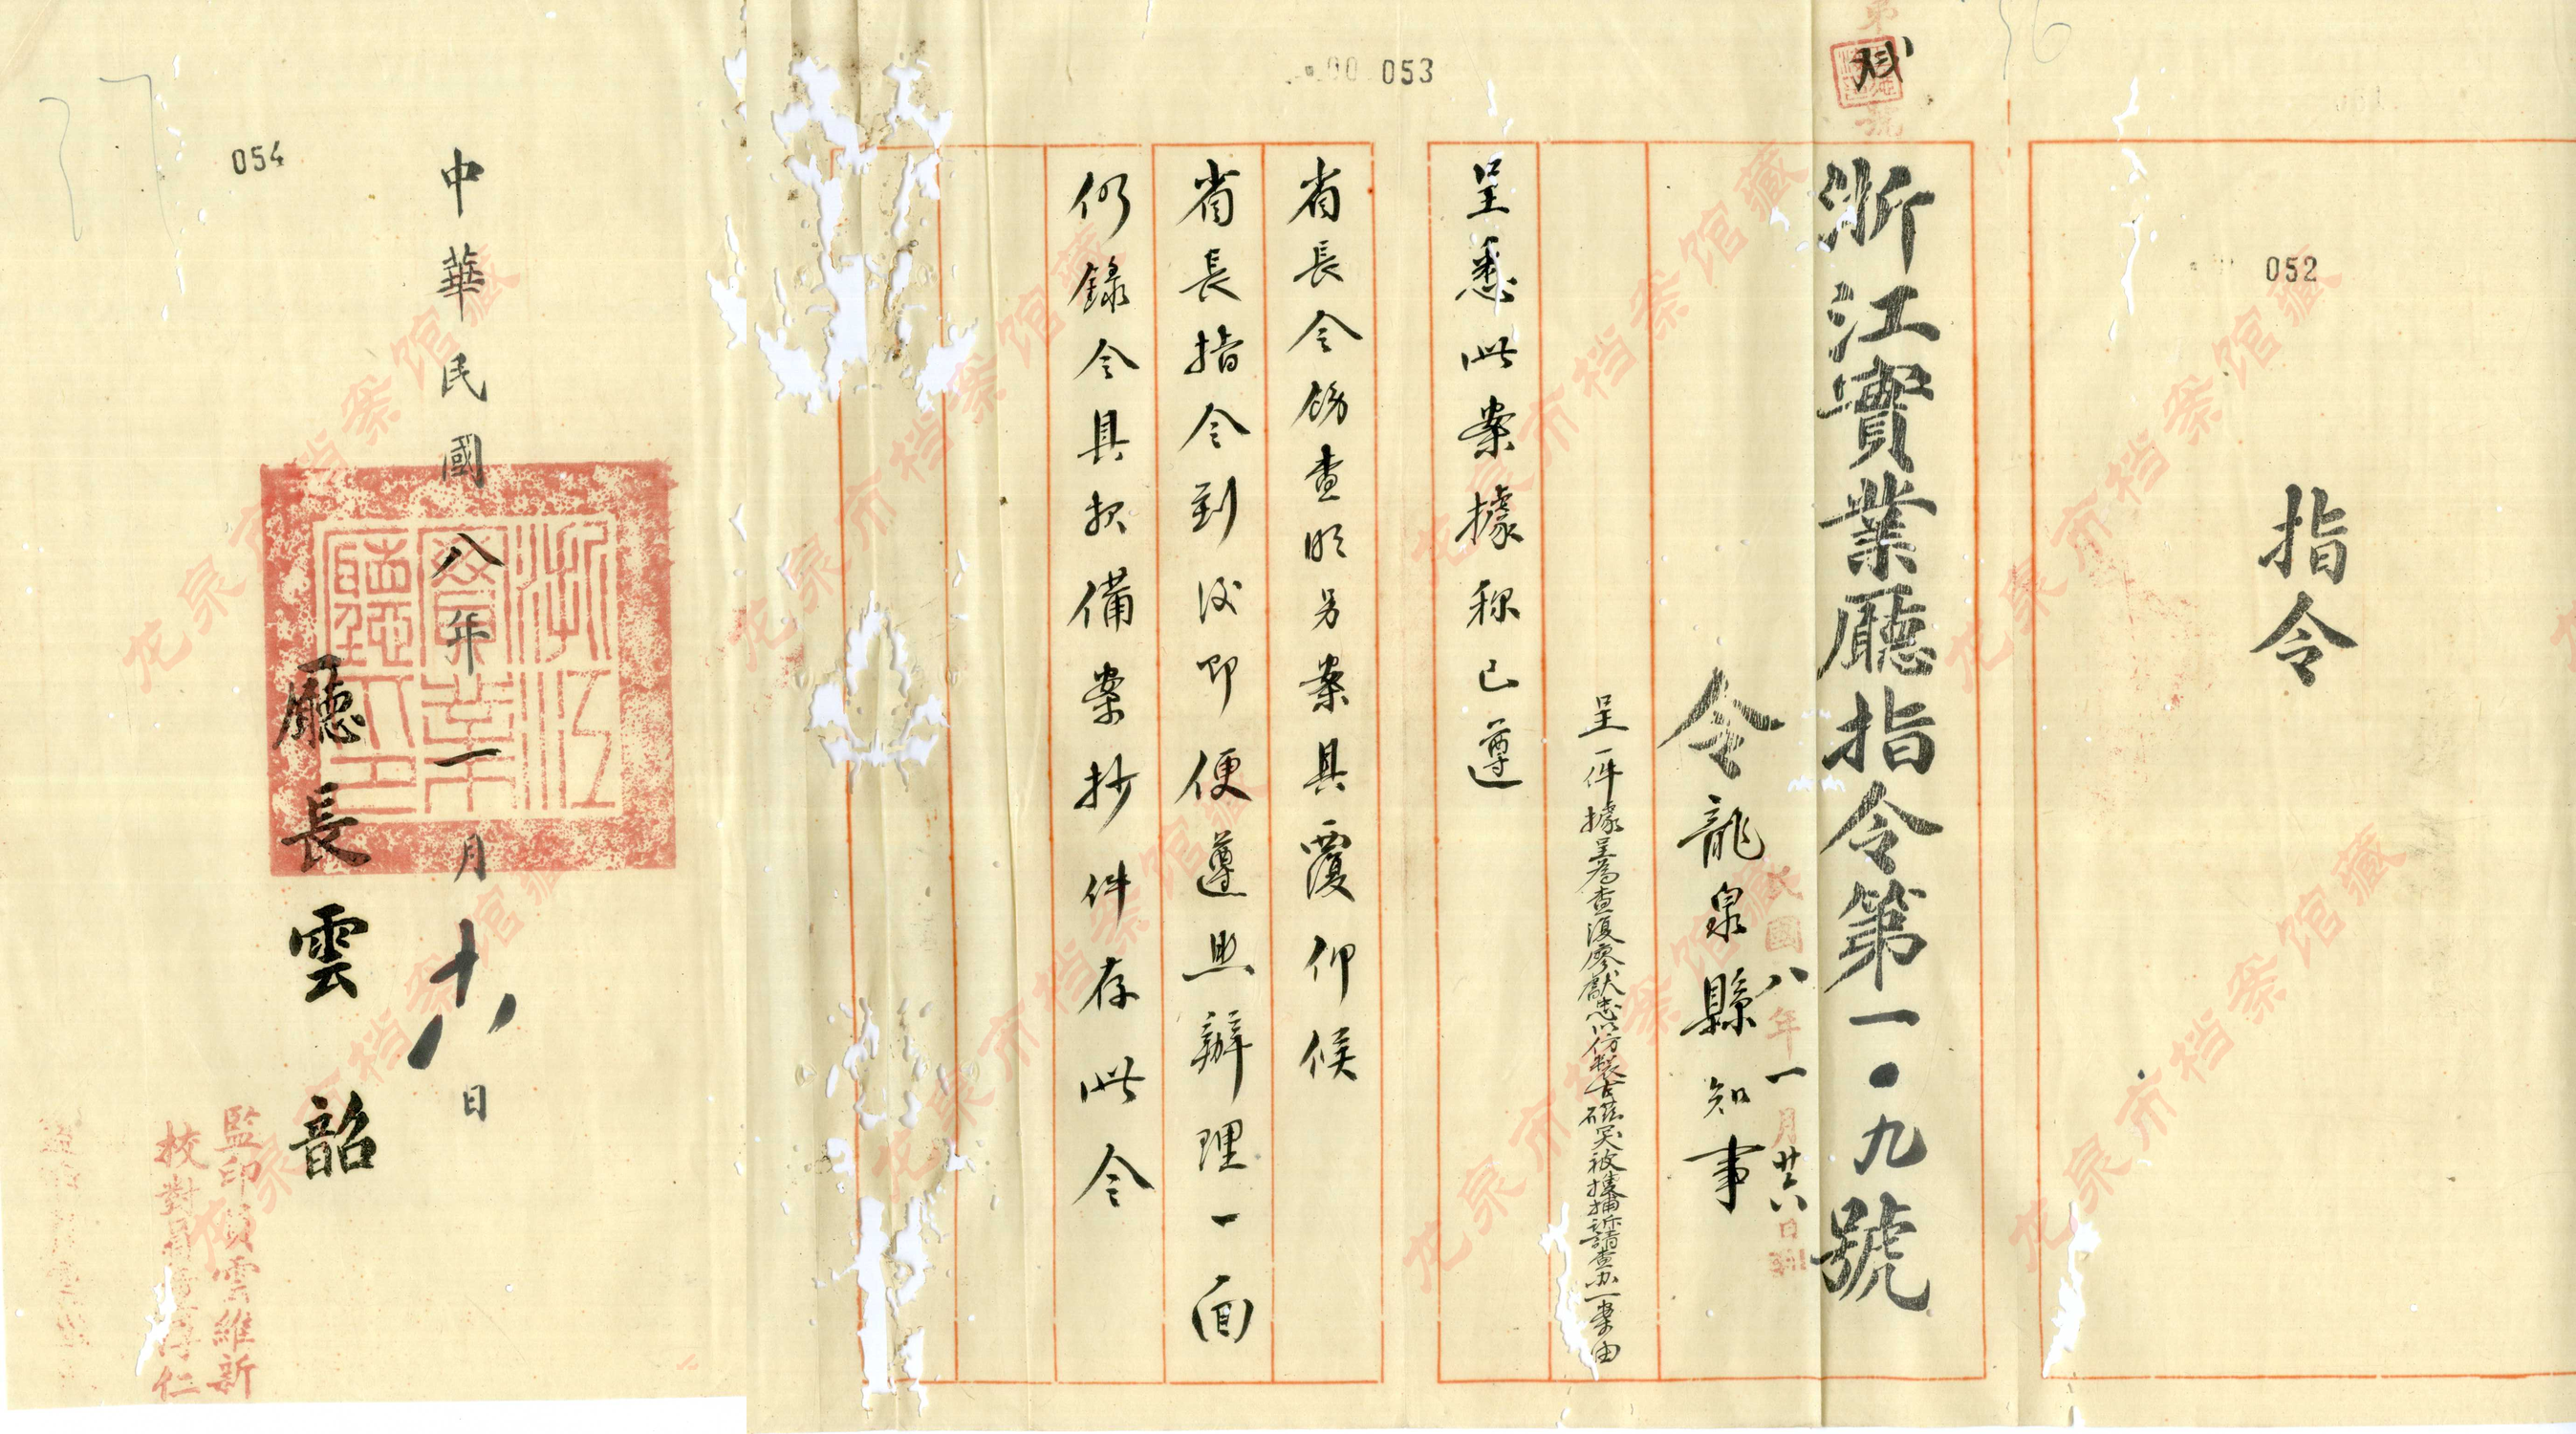 052
指令
浙江實業廳指令第一·九號
民國八年一月廿六日
令龍泉縣知事
呈一件據呈為查復廖獻忠以仿製古磁冤被擄捕訴請查办一案由
呈悉此案據称已遵
053
省長令飭查明另案具覆仰候
省長指令到後即便遵照辦理一面
仍錄令具報備案抄件存此令
054
中華民國八年一月十八日
廳長雲韶
浙江實業廳印
監印 雲維新
校對 仁
龙泉市档案馆藏